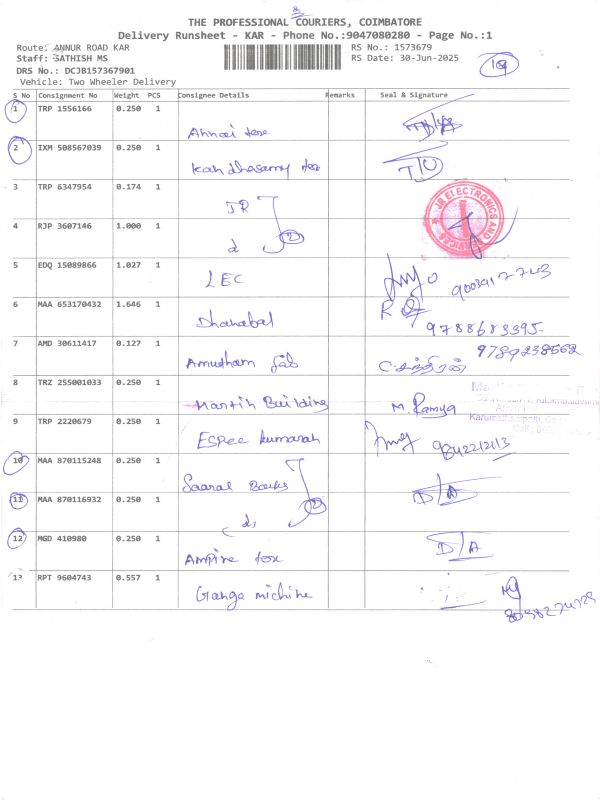 THE PROFESSIONAL COURIERS, COIMBATORE
Delivery Runsheet - KAR - Phone No.:9047080280 - Page No.:1
Route: ANNUR ROAD KAR RS No.: 1573679
Staff: SATHISH MS RS Date: 30-Jun-2025
DRS No.: DCJB157367901
Vehicle: Two Wheeler Delivery
S No Consignment No Weight PCS Consignee Details Remarks Seal & Signature
1 TRP 1556166 0.250 1
Annai tex
2 IXM 508567039 0.250 1
Kandhasamy tex
3 TRP 6347954 0.174 1
JR
JR ELECTRONICS AND SERVICES
4 RJP 3607146 1.000 1
2
5 EDQ 15089866 1.027 1
LEC
6 MAA 653170432 1.646 1
Dhanabal 9788683395
7 AMD 30611417 0.127 1
Amudham 9789238562
8 TRZ 255001033 0.250 1
Martin Building M. Ramya
9 TRP 2220679 0.250 1
Espee kumaran 9842212113
10 MAA 870115248 0.250 1
11 MAA 870116932 0.250 1
2 D/A
12 MGD 410980 0.250 1
Ampire tex D/A
13 RPT 9604743 0.557 1
Ganga michine